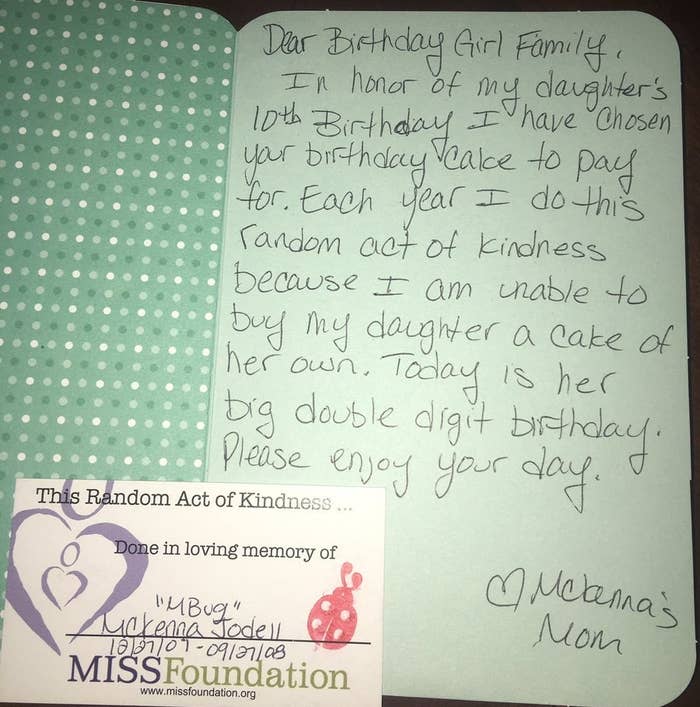 Dear Birthday Girl Family,
In honor of my daughter's
10th Birthday I have chosen
your birthday cake to pay
for. Each year I do this
random act of kindness
because I am unable to
buy my daughter a cake of
her own. Today is her
big double digit birthday.
Please enjoy your day.
♡ McKenna's
Mom
This Random Act of Kindness ...
Done in loving memory of
"MBug"
McKenna Jodell
12/27/07 - 09/27/08
MISSFoundation
www.missfoundation.org